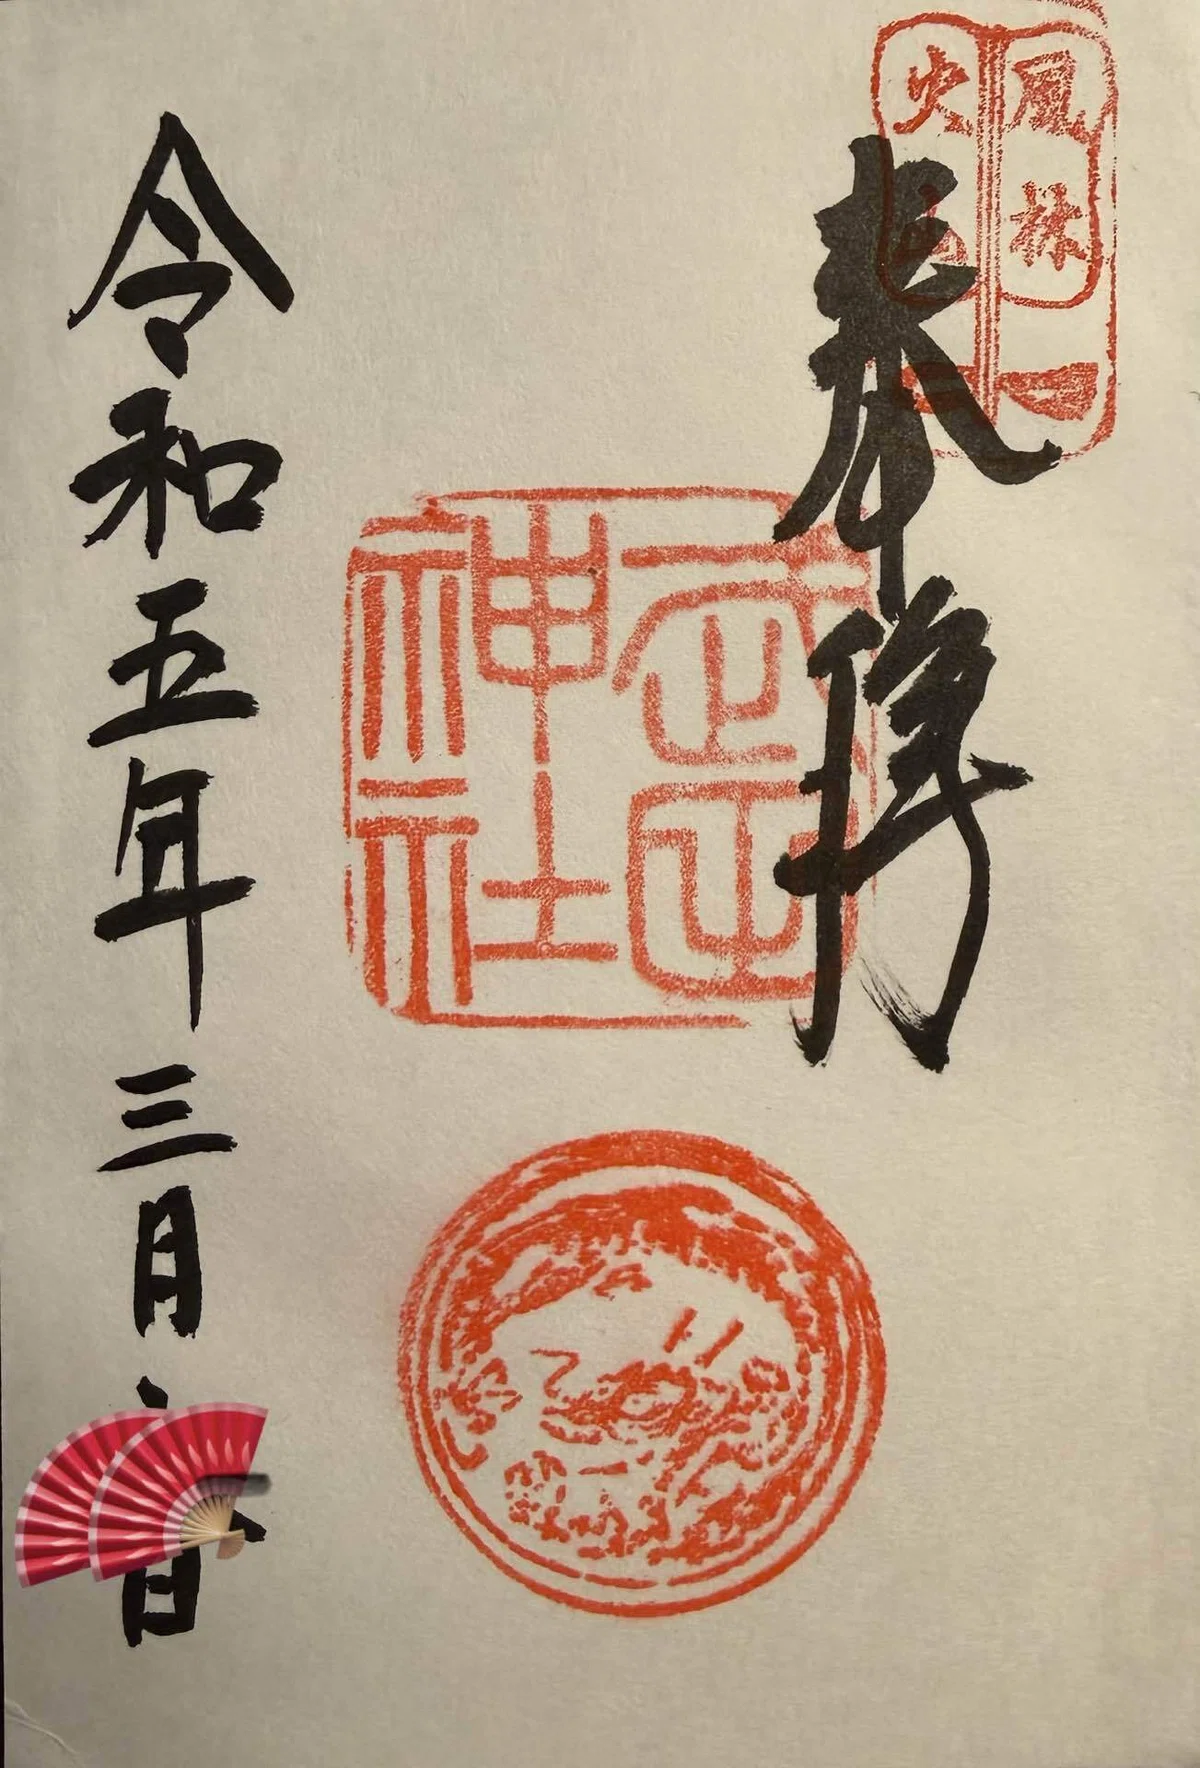 風林
火山
奉拝
武田
神社
令和五年三月
日